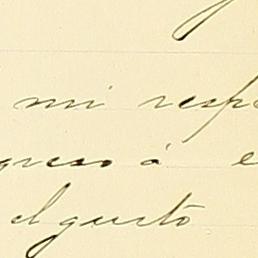 mi resp
greso á e
el gusto